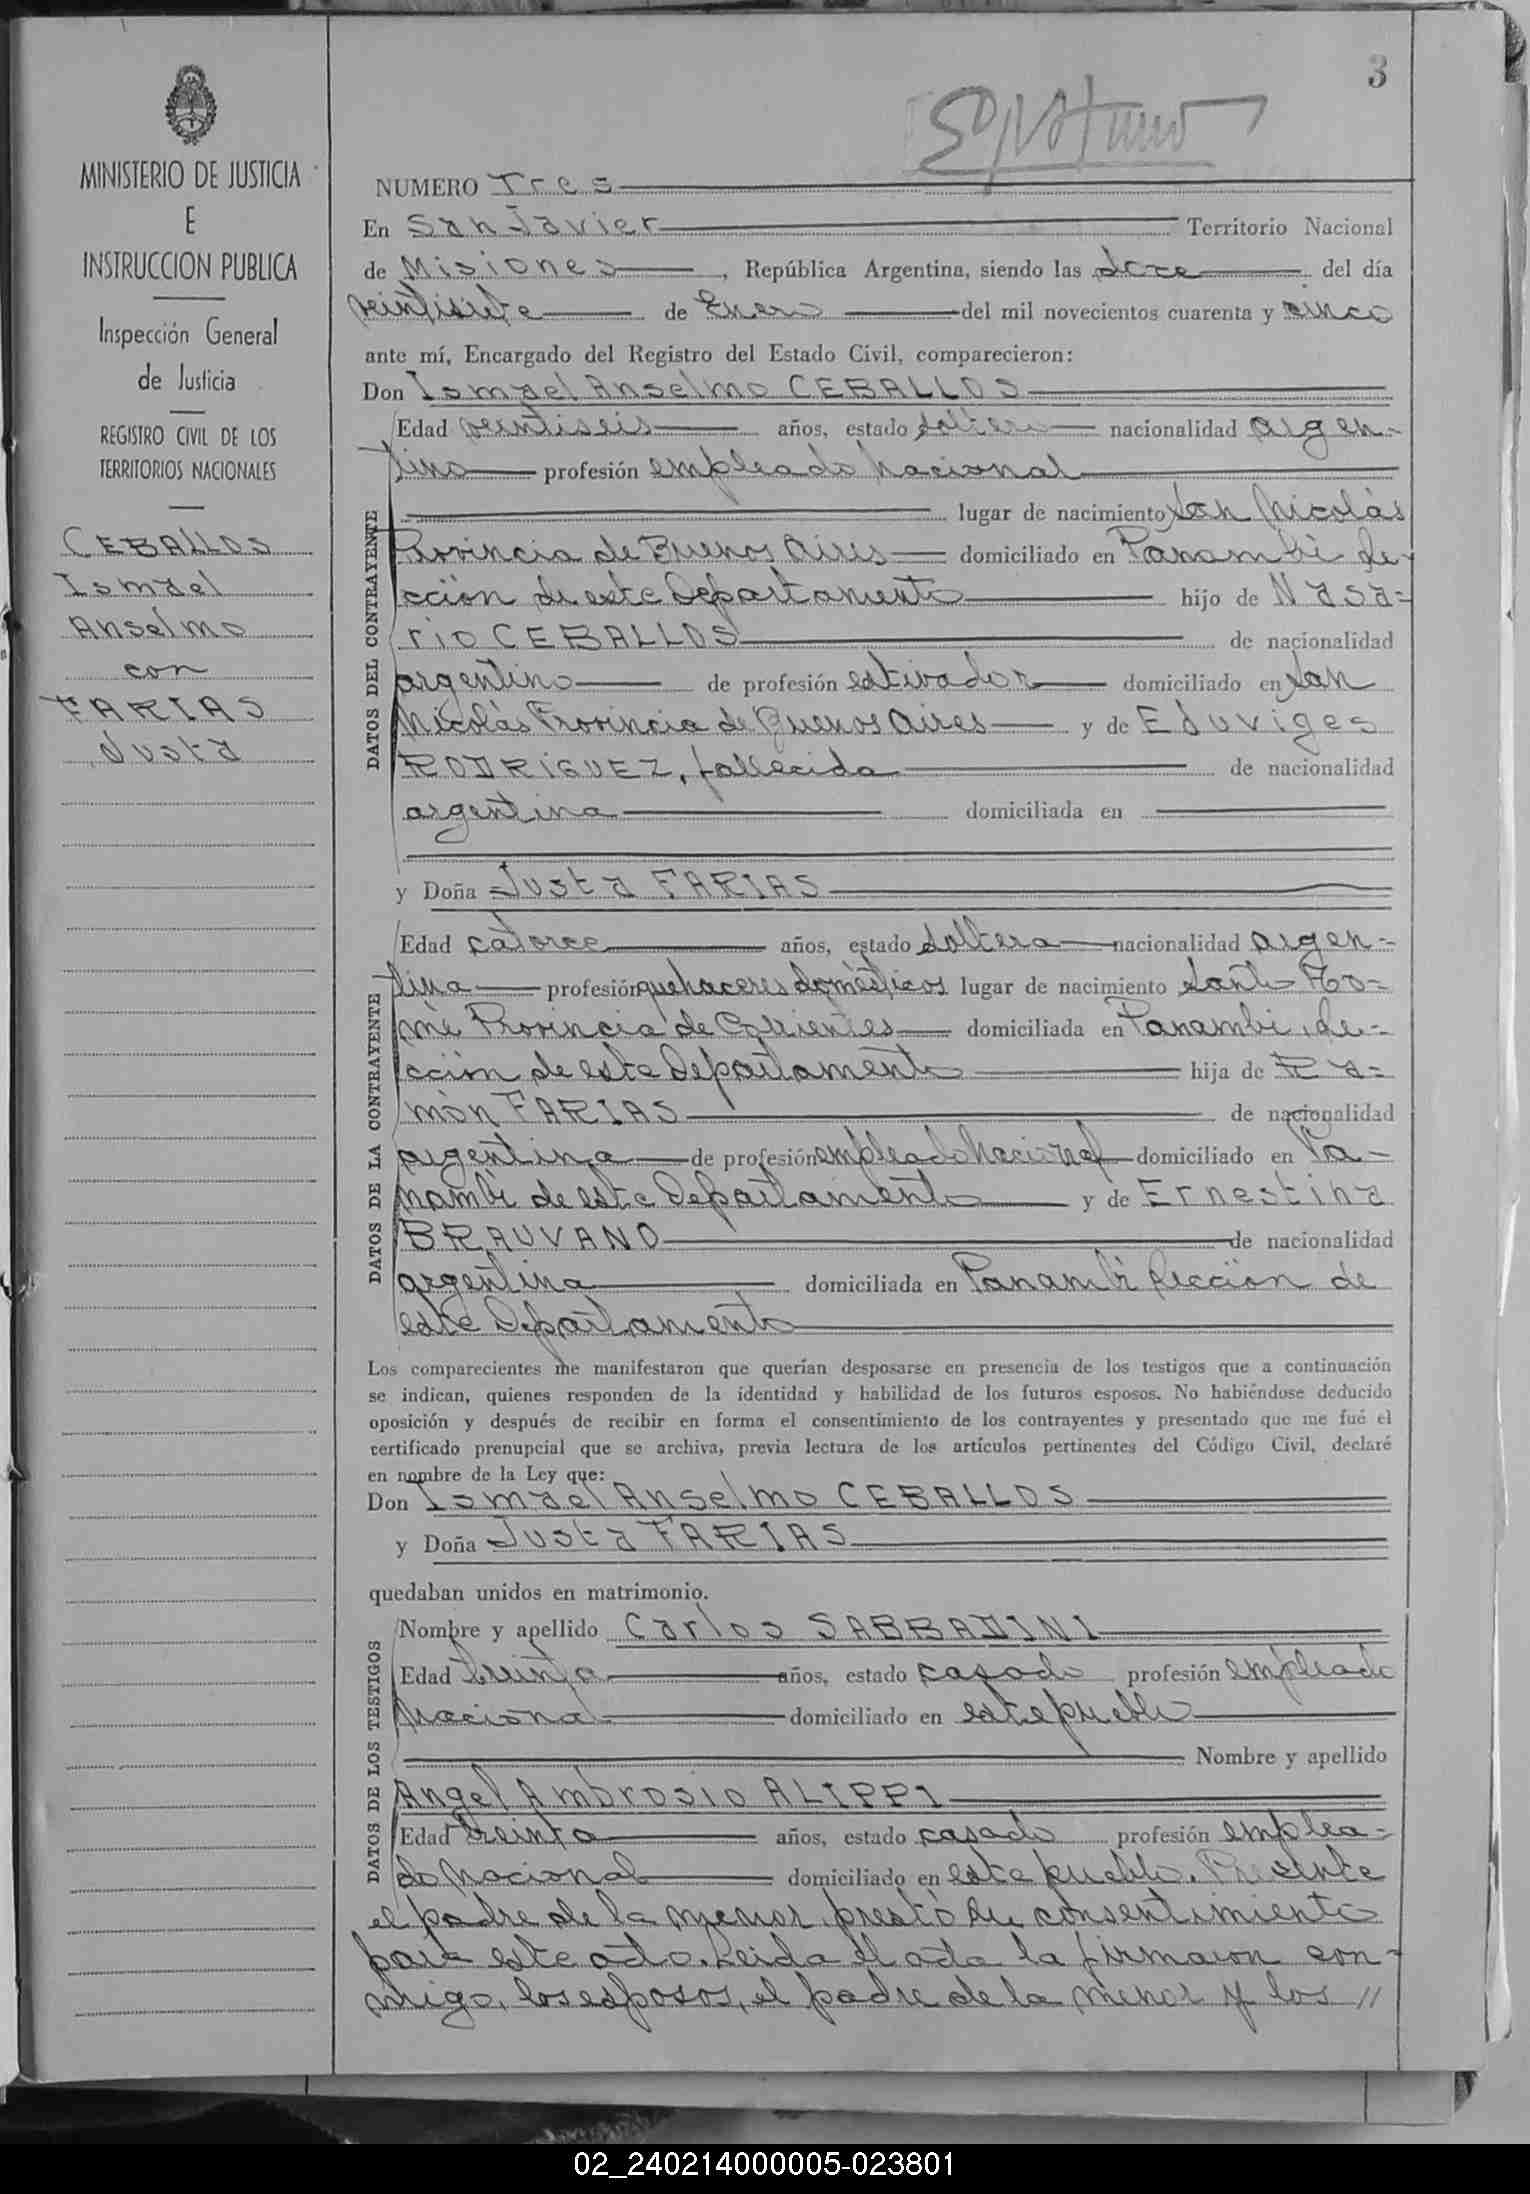 3
MINISTERIO DE JUSTICIA
E
INSTRUCCION PUBLICA
Inspección General
de Justicia
REGISTRO CIVIL DE LOS
TERRITORIOS NACIONALES
CEBALLOS
Ismael
Anselmo
con
FARIAS
Justa
NUMERO Tres
En San Javier Territorio Nacional
de Misiones, República Argentina, siendo las doce del día
veintisiete de Enero del mil novecientos cuarenta y cinco
ante mí, Encargado del Registro del Estado Civil, comparecieron:
Don Ismael Anselmo CEBALLOS
DATOS DEL CONTRAYENTE
Edad veintiseis años, estado soltero nacionalidad argen-
tino profesión empleado nacional
lugar de nacimiento San Nicolás
Provincia de Buenos Aires domiciliado en Panambí Se-
cción de este Departamento hijo de Nasa=
rio CEBALLOS de nacionalidad
argentino de profesión estivador domiciliado en San
Nicolás Provincia de Buenos Aires y de Eduviges
RODRIGUEZ, fallecida de nacionalidad
argentina domiciliada en
y Doña Justa FARIAS
DATOS DE LA CONTRAYENTE
Edad catorce años, estado soltera nacionalidad argen-
tina profesión quehaceres domésticos lugar de nacimiento Santo To=
mé Provincia de Corrientes domiciliada en Panambí, Se-
cción de este Departamento hija de Ra=
món FARIAS de nacionalidad
argentina de profesión empleado Nacional domiciliado en Pa-
nambí de este Departamento y de Ernestina
BRAUVANO de nacionalidad
argentina domiciliada en Panambí Sección de
este Departamento
Los comparecientes me manifestaron que querían desposarse en presencia de los testigos que a continuación
se indican, quienes responden de la identidad y habilidad de los futuros esposos. No habiéndose deducido
oposición y después de recibir en forma el consentimiento de los contrayentes y presentado que me fué el
certificado prenupcial que se archiva, previa lectura de los artículos pertinentes del Código Civil, declaré
en nombre de la Ley que:
Don Ismael Anselmo CEBALLOS
y Doña Justa FARIAS
quedaban unidos en matrimonio.
DATOS DE LOS TESTIGOS
Nombre y apellido Carlos SABBADINI
Edad treinta años, estado casado profesión empleado
Nacional domiciliado en este pueblo
Nombre y apellido
Angel Ambrosio ALIPPI
Edad treinta años, estado casado profesión emplea-
do Nacional domiciliado en este pueblo. Presente
el padre de la menor prestó su consentimiento
para este acto. Leida el acta la firmaron con-
migo, los esposos, el padre de la menor y los //
02_240214000005-023801